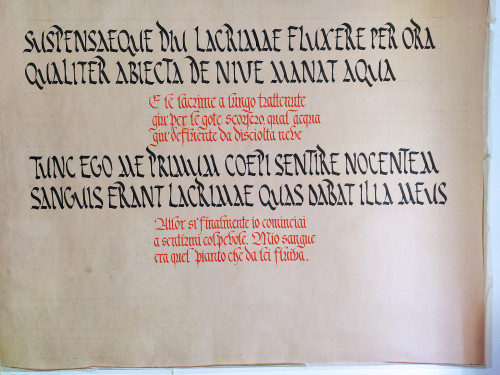 SUSPENSAEQUE DIU LACRIMAE FLUXERE PER ORA
QUALITER ABIECTA DE NIVE MANAT AQUA
E le lacrime a lungo trattenute
giù per le gote scorsero, qual acqua
giù defluente da disciolta neve
TUNC EGO ME PRIMUM COEPI SENTIRE NOCENTEM
SANGUIS ERANT LACRIMAE QUAS DABAT ILLA MEUS
Allor sì finalmente io cominciai
a sentirmi colpevole. Mio sangue
era quel pianto che da lei fluiva.